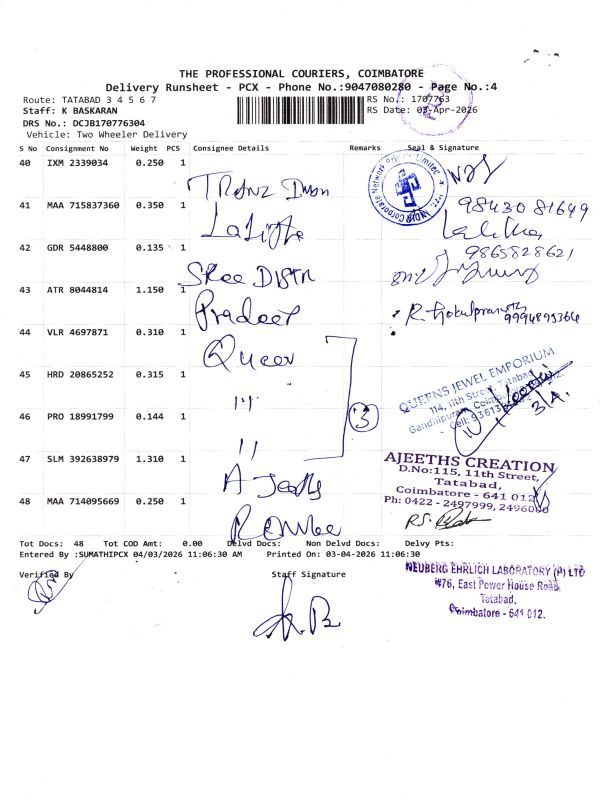 THE PROFESSIONAL COURIERS, COIMBATORE
Delivery Runsheet - PCX - Phone No.:9047080280 - Page No.:4
Route: TATABAD 3 4 5 6 7
RS No.: 1707763
Staff: K BASKARAN
RS Date: 03-Apr-2026
DRS No.: DCJB170776304
Vehicle: Two Wheeler Delivery
S No Consignment No Weight PCS Consignee Details Remarks Seal & Signature
40 IXM 2339034 0.250 1
41 MAA 715837360 0.350 1
98430 81649
Lalitha
42 GDR 5448800 0.135 1
9865828621
Sree Distri
43 ATR 8044814 1.150 1
Pradeep
9994895364
44 VLR 4697871 0.310 1
Queen
45 HRD 20865252 0.315 1
"
QUEENS JEWEL EMPORIUM
114, 11th Street, Tatabad,
Gandhipuram, Coimbatore
Cell: 93613
46 PRO 18991799 0.144 1
"
3
47 SLM 392638979 1.310 1
AJEETHS CREATION
D.No:115, 11th Street,
Tatabad,
Coimbatore - 641 012
Ph: 0422 - 2497999, 2496000
48 MAA 714095669 0.250 1
Tot Docs: 48 Tot COD Amt: 0.00 Delvd Docs: Non Delvd Docs: Delvy Pts:
Entered By :SUMATHIPCX 04/03/2026 11:06:30 AM Printed On: 03-04-2026 11:06:30
Verified By
Staff Signature
NEUBERG EHRLICH LABORATORY (P) LTD
#76, East Power House Road,
Tatabad,
Coimbatore - 641 012.